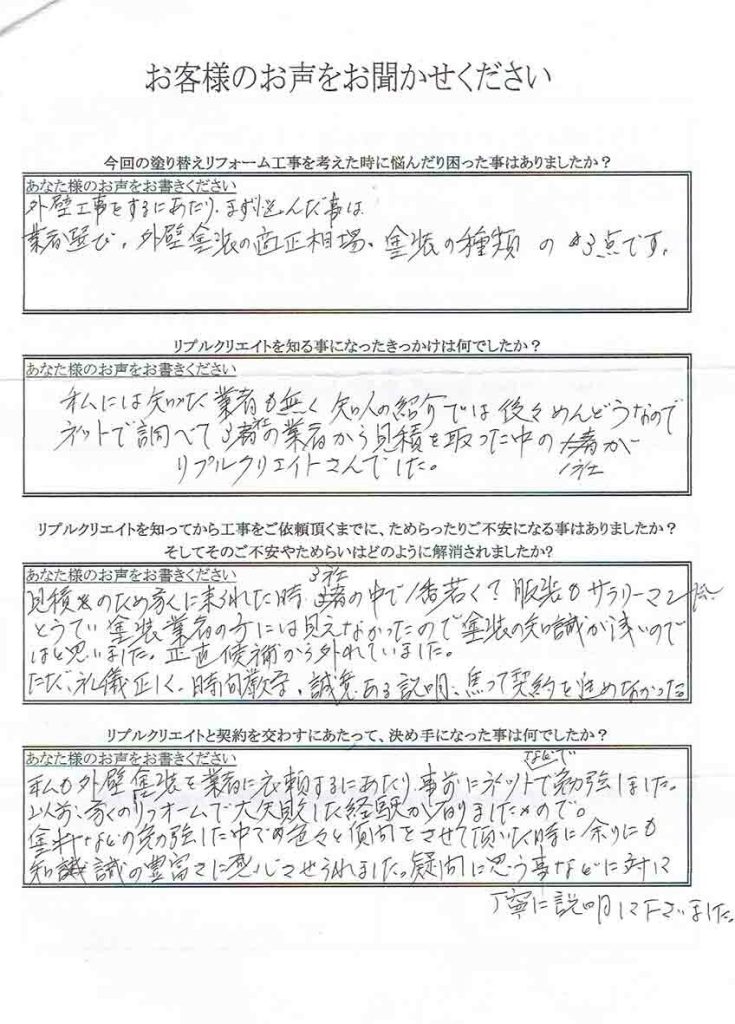 お客様のお声をお聞かせください
今回の塗り替えリフォーム工事を考えた時に悩んだり困った事はありましたか？
あなた様のお声をお書きください
外壁工事をするにあたり、まず悩んだ事は
業者選び、外壁塗装の適正相場、塗装の種類の3点です。
リプルクリエイトを知る事になったきっかけは何でしたか？
あなた様のお声をお書きください
私には知った業者も無く知人の紹介では後々めんどうなので
ネットで調べて3社の業者から見積を取った中の1社が
リプルクリエイトさんでした。
リプルクリエイトを知ってから工事をご依頼頂くまでに、ためらったりご不安になる事はありましたか？
そしてそのご不安やためらいはどのように解消されましたか?
あなた様のお声をお書きください
見積のため家に来られた時3社の中で1番若く？服装もサラリーマン
とうてい塗装業者の方には見えなかったので塗装の知識が浅いので
はと思いました。正直候補から外れていました。
ただ、礼儀正しく、時間厳守、誠意ある説明、焦って契約を進めなかった
リプルクリエイトと契約を交わすにあたって、決め手になった事は何でしたか？
あなた様のお声をお書きください
私も外壁塗装を業者に依頼するにあたり、事前にネットなどで勉強しました。
以前、家のリフォームで大失敗した経験が有りましたので。
塗料などの勉強した中での色々と質問をさせて頂いた時に余りにも
知識の豊富さに感心させられました。疑問に思う事などに対して
丁寧に説明して下さいました。